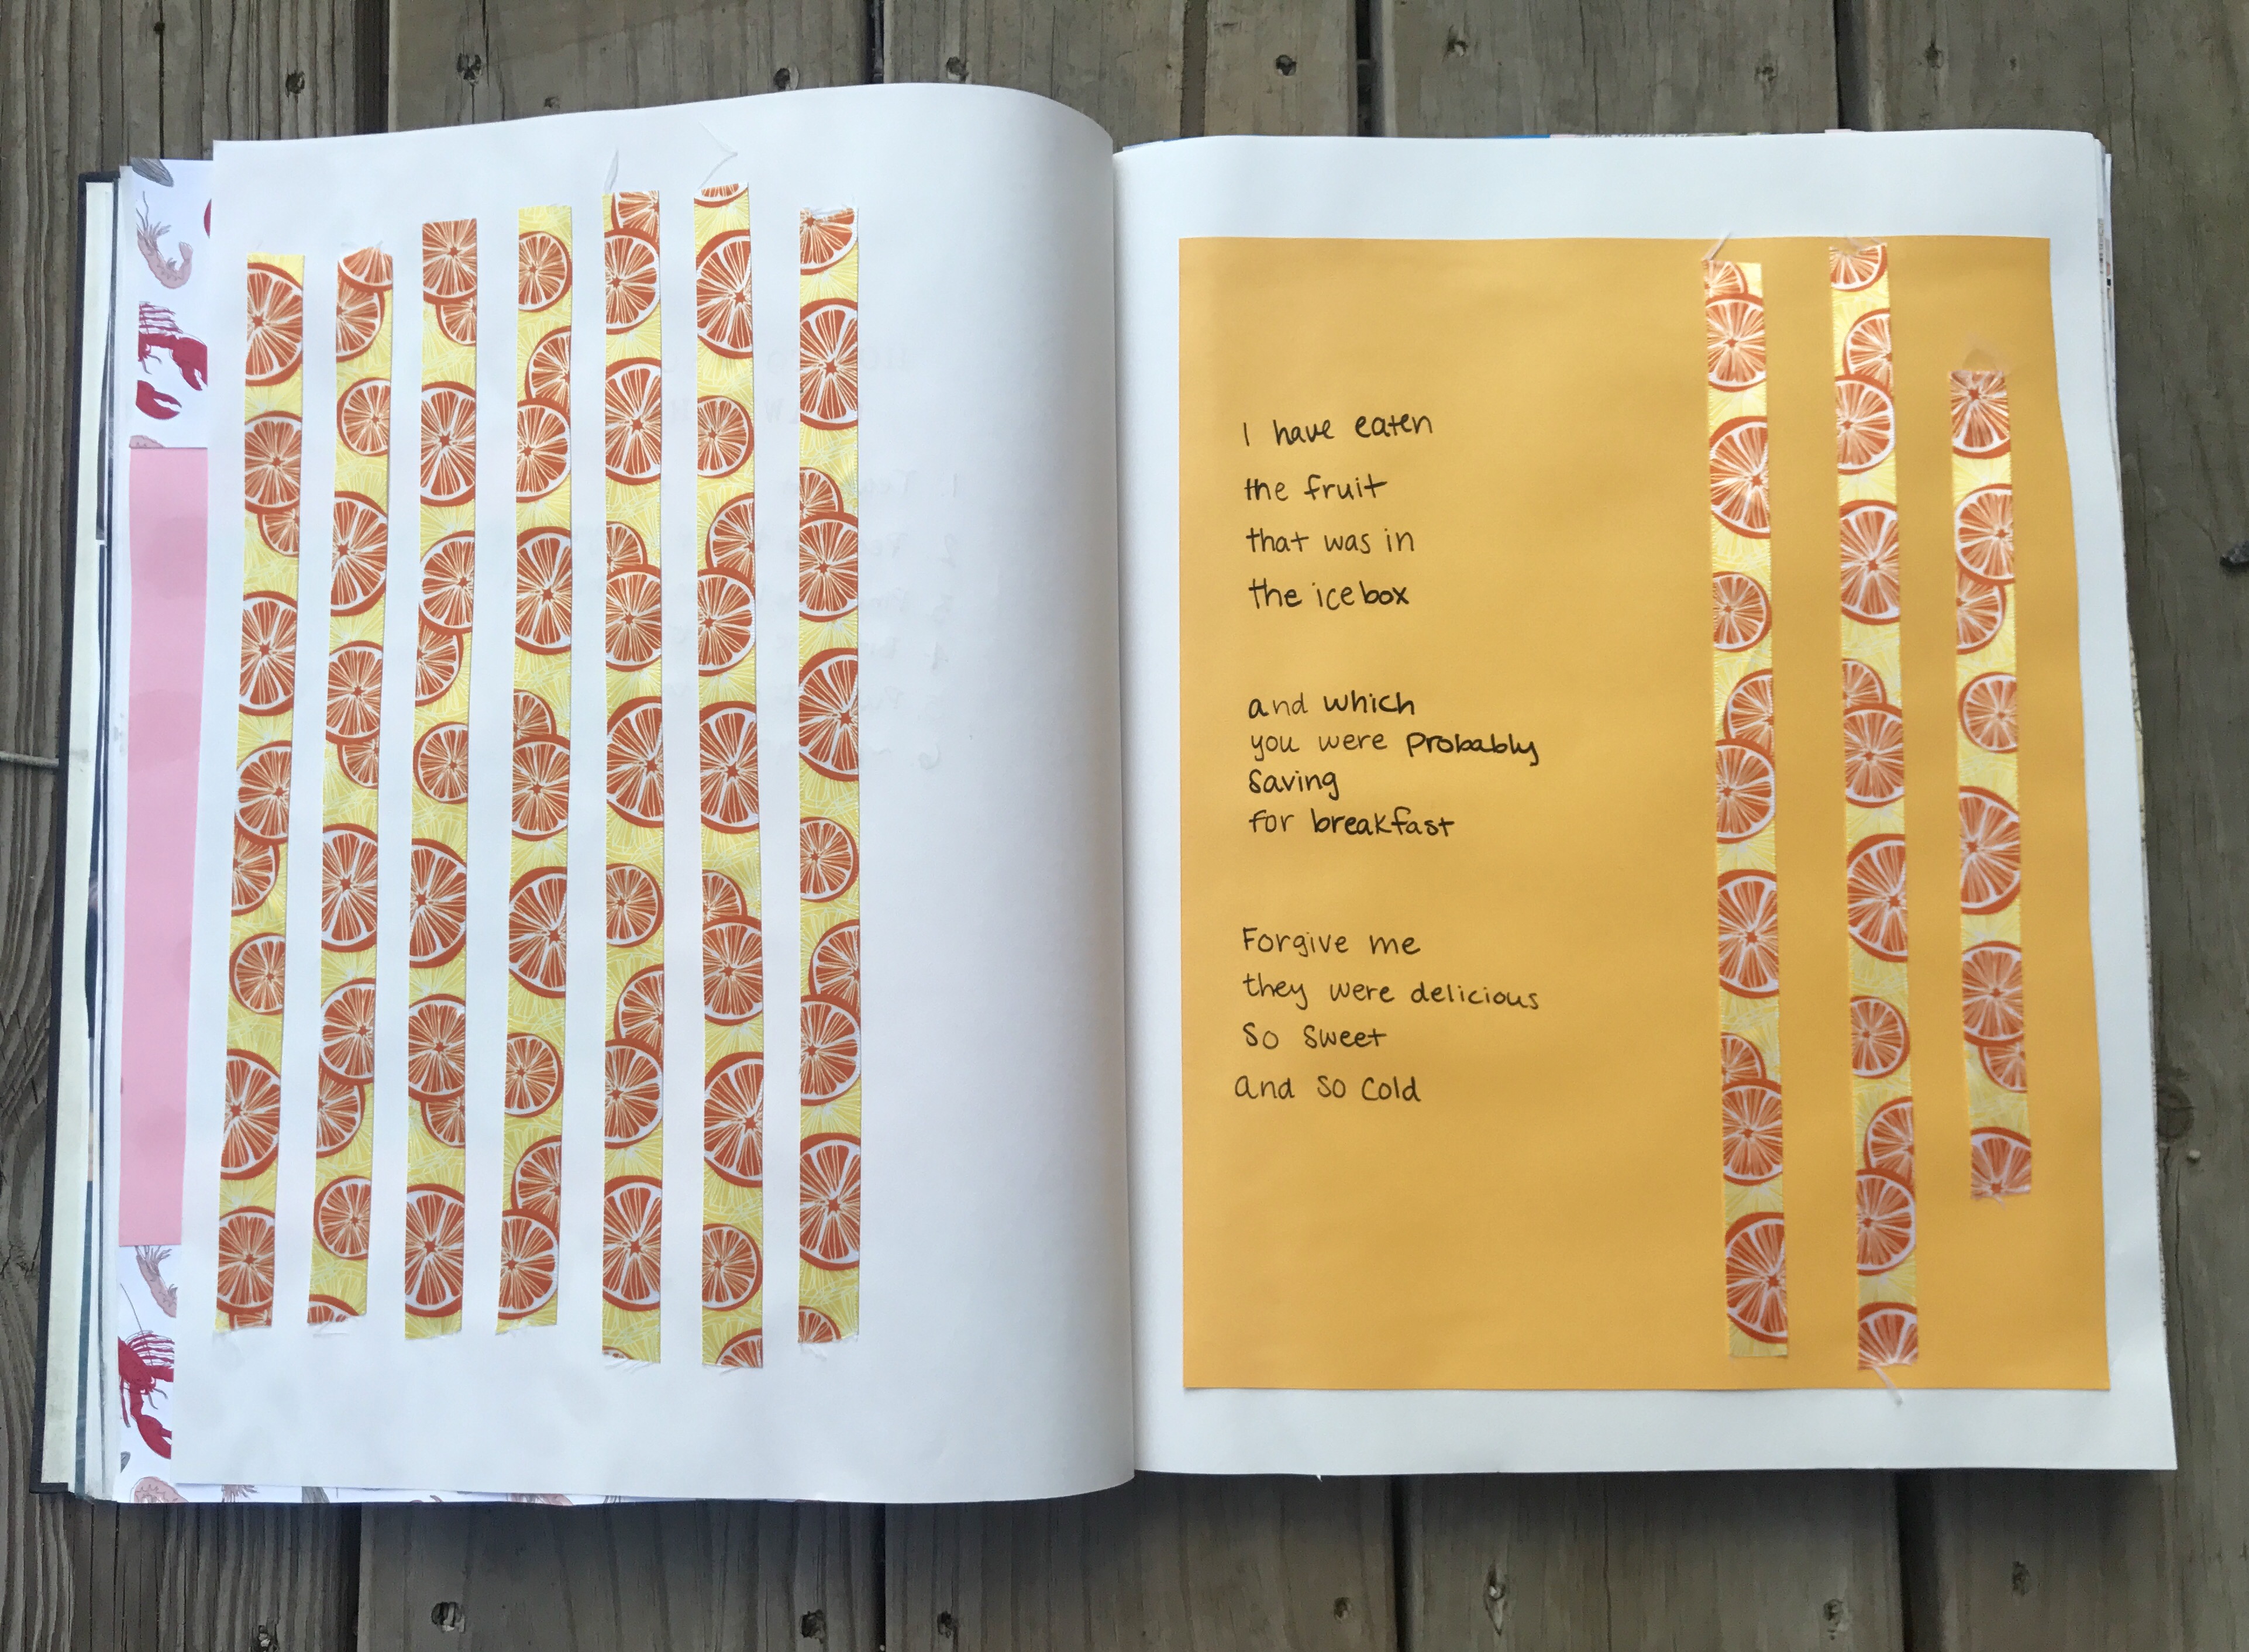 I have eaten
the fruit
that was in
the icebox
and which
you were probably
saving
for breakfast
Forgive me
they were delicious
so sweet
and so cold